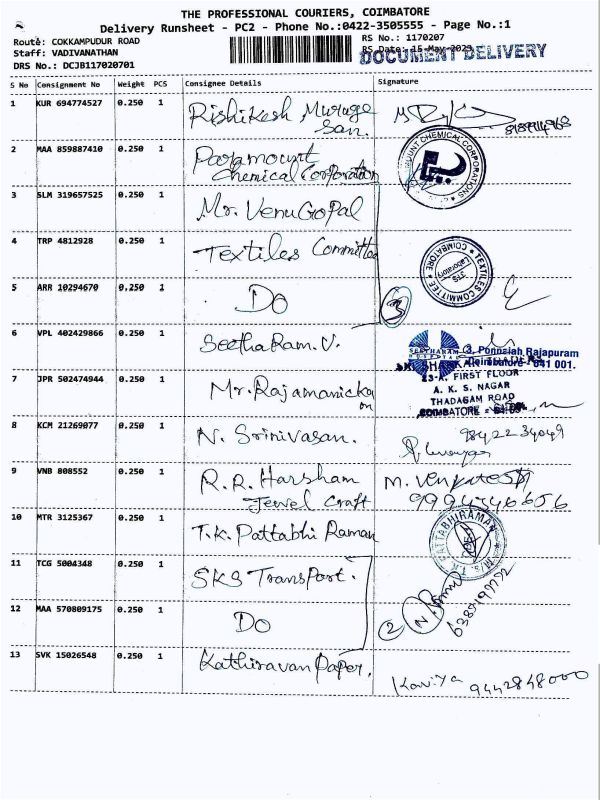 THE PROFESSIONAL COURIERS, COIMBATORE
Delivery Runsheet - PC2 - Phone No.:0422-3505555 - Page No.:1
Route: COKKAMPUDUR ROAD
RS No.: 1170207
Staff: VADIVANATHAN
RS Date: 15-May-2023
DOCUMENT DELIVERY
DRS No.: DCJB117020701
S No Consignment No Weight PCS Consignee Details Signature
1 KUR 694774527 0.250 1 Rishikesh Muruge
san.
2 MAA 859887410 0.250 1 Paramount
Chemical Corporation
MOUNT CHEMICAL CORPORATIONS
3 SLM 319657525 0.250 1 Mr. VenuGopal
4 TRP 4812928 0.250 1 Textiles Committee
TEXTILES COMMITTEE
COIMBATORE
Laboratory
5 ARR 10294670 0.250 1 Do
3
6 VPL 402429866 0.250 1 Seetha Ram. V.
SEETHARAM
HOSPITAL
3, Ponnaiah Rajapuram
Coimbatore - 641 001.
7 JPR 502474944 0.250 1 Mr. Rajamanicka
m
23-A, FIRST FLOOR
A. K. S. NAGAR
THADAGAM ROAD
COIMBATORE
8 KCM 21269077 0.250 1 N. Srinivasan.
98422 34049
9 VNB 808552 0.250 1 R.R. Harsham
Jewel Craft
M. Venkatesh
9994446656
10 MTR 3125367 0.250 1 T.K. Pattabhi Raman
M/S. T.K. PATTABHIRAMAN
11 TCG 5004348 0.250 1 SKS Transport.
12 MAA 570809175 0.250 1 Do
2
13 SVK 15026548 0.250 1 Kathiravan Paper.
Kaviya 9442848000